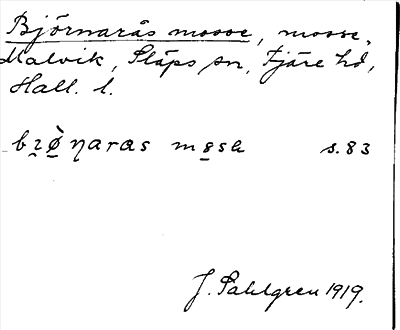 Björnarås mosse, mosse,
Malvik, Släps sn, Fjäre hd,
Hall. l.
s. 83
J. Sahlgren 1919.